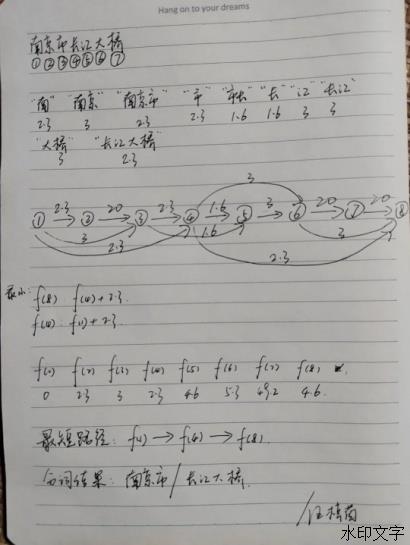 Hang on to your dreams
南京市长江大桥
① ② ③ ④ ⑤ ⑥ ⑦
"南" "南京" "南京市" "市" "市长" "长" "江" "长江"
2.3 3 2.3 2.3 1.6 1.6 3 3
"大桥" "长江大桥"
3 2.3
3
① 2.3 ② 20 ③ 2.3 ④ 1.6 ⑤ 3 ⑥ 20 ⑦ 20 ⑧
3 1.6 3
2.3 2.3
最小: f(8) f(4)+2.3
f(4) f(1)+2.3
f(1) f(2) f(3) f(4) f(5) f(6) f(7) f(8)
0 2.3 3 2.3 4.6 5.3 4.6
最短路径: f(1) → f(4) → f(8).
分词结果: 南京市 / 长江大桥.
水印文字